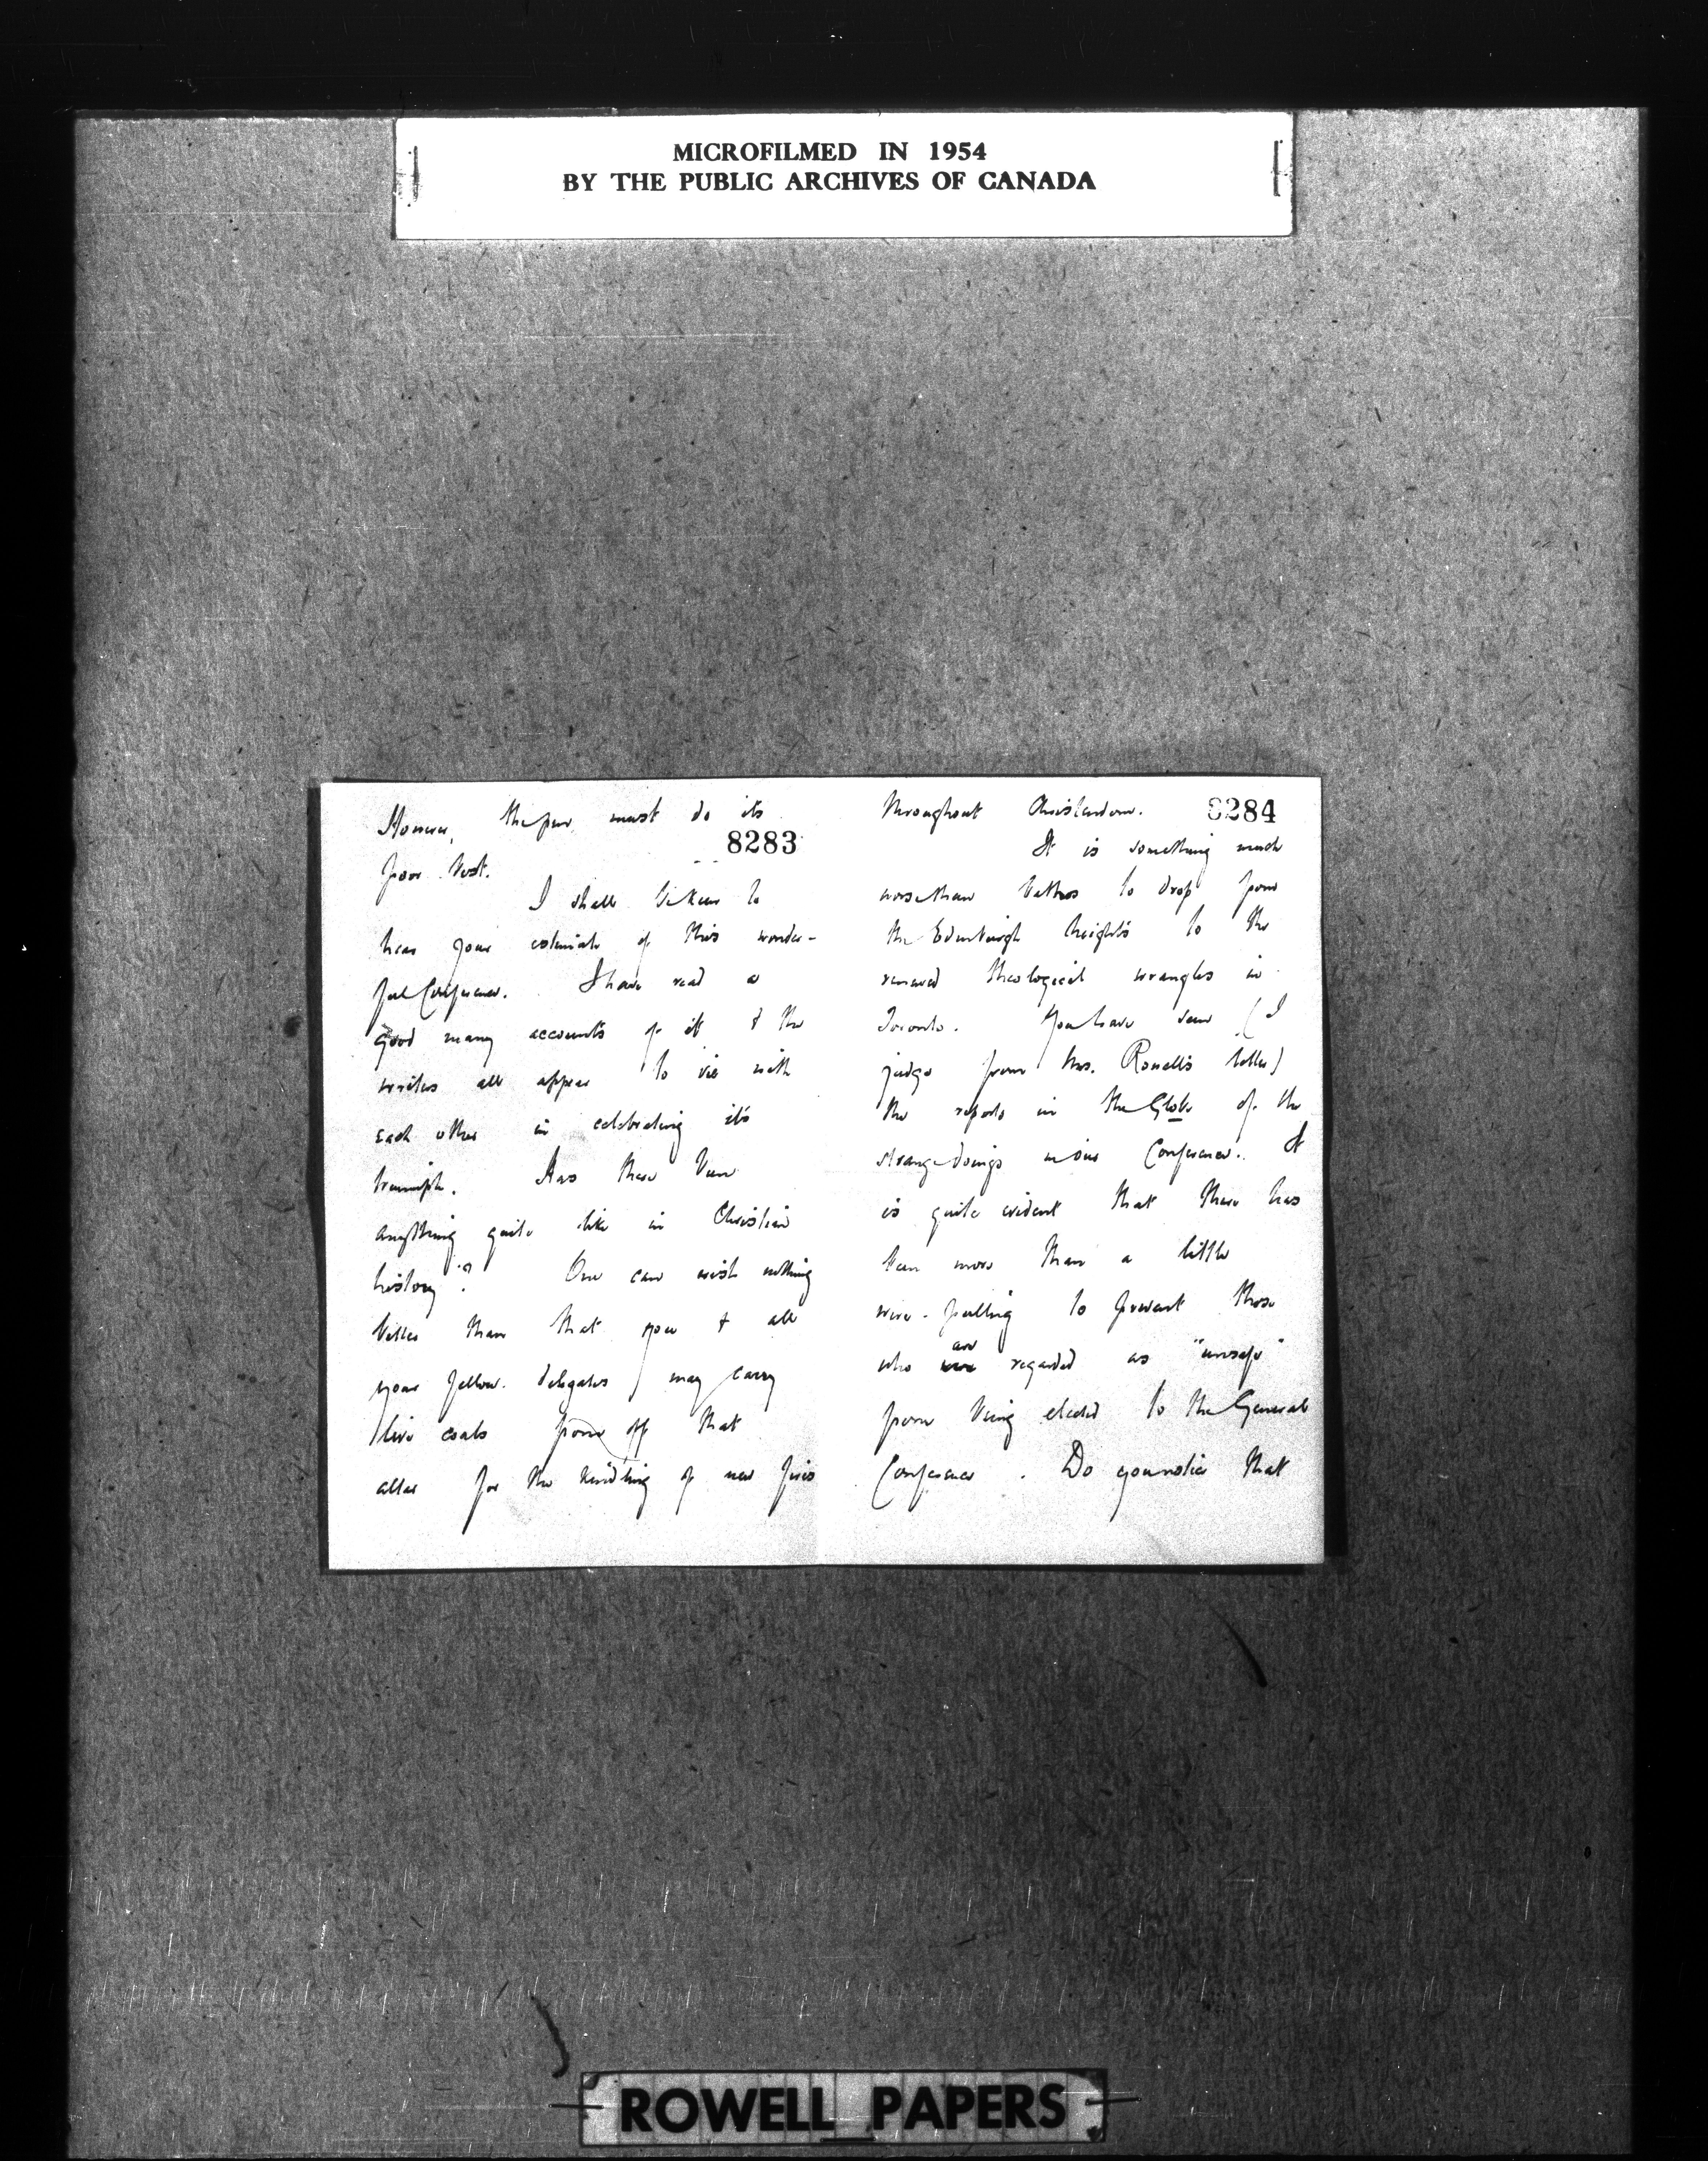 MICROFILMED IN 1954
BY THE PUBLIC ARCHIVES OF CANADA
However, the pen must do its
8283
poor best.
I shall be keen to
hear your estimate of this wonder-
ful Conference. I have read a
good many accounts of it & the
writers all appear to vie with
each other in celebrating its
triumph. Has there been
anything quite like in Christian
history? One can wish nothing
better than that you & all
your fellow-delegates may carry
live coals from off that
altar for the kindling of new fires
throughout Christendom. 8284
It is something much
worse than bathos to drop from
the Edinburgh heights to the
renewed theological wrangles in
Toronto. You have seen (I
judge from Mrs. Rowell's letter)
the reports in the Globe of the
strange doings in our Conference. It
is quite evident that there has
been more than a little
wire-pulling to prevent those
are
who were regarded as "unsafe"
from being elected to the General
Conference. Do you notice that
ROWELL PAPERS